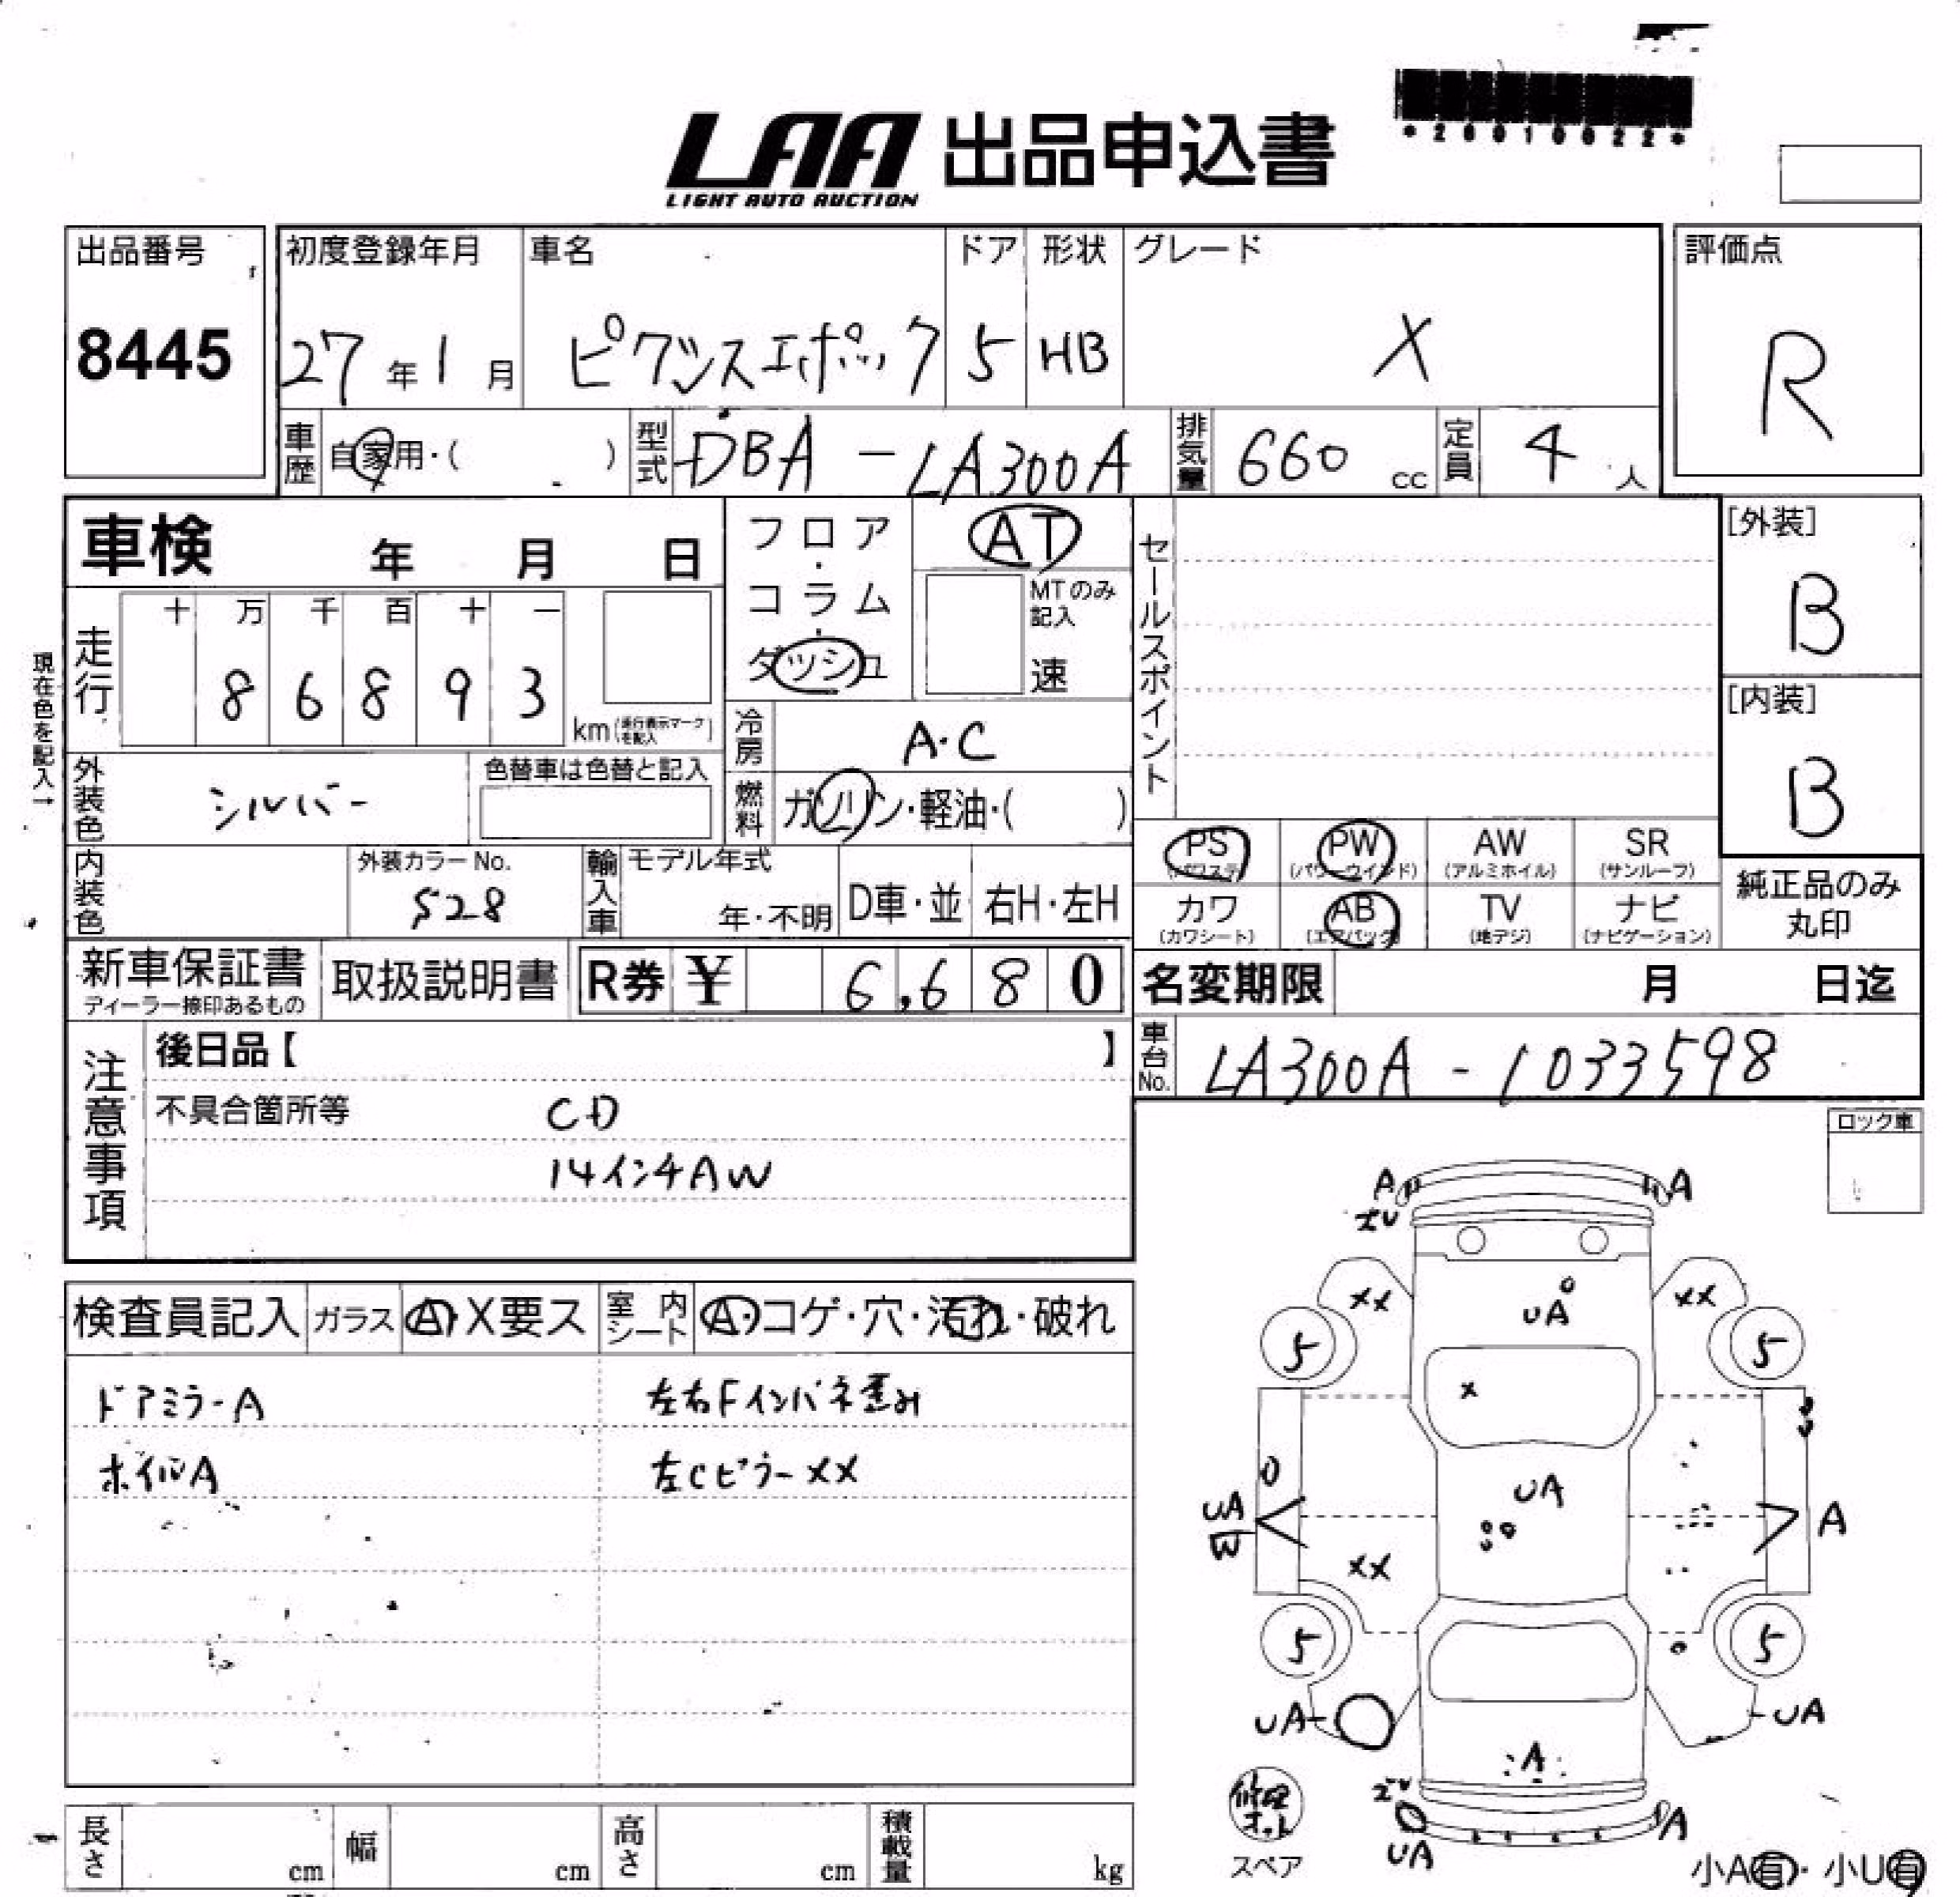 *20010022*
LAA 出品申込書
LIGHT AUTO AUCTION
出品番号 初度登録年月 車名 ドア 形状 グレード 評価点
8445 27年1月 ピクシスエポック 5 HB X R
車歴 自家用・( ) 型式 DBA-LA300A 排気量 660 cc 定員 4 人
車検 年 月 日
フロア・コラム・ダッシュ
AT
MTのみ記入
速
セールスポイント
[外装]
B
[内装]
B
現在色を記入→
走行 十 万 千 百 十 一
8 6 8 9 3
km(走行表示マークを記入)
冷房 A・C
外装色 シルバー 色替車は色替と記入
燃料 ガソリン・軽油・( )
PS (パワステ) PW (パワーウインド) AW (アルミホイル) SR (サンルーフ)
内装色 外装カラーNo. S28 輸入車 モデル年式 年・不明 D車・並 右H・左H
カワ (カワシート) AB (エアバッグ) TV (地デジ) ナビ (ナビゲーション)
純正品のみ丸印
新車保証書 ディーラー捺印あるもの 取扱説明書 R券 ¥ 6,680
名変期限 月 日迄
注意事項
後日品【 】
車台No. LA300A-1033598
不具合箇所等 CD
14インチAW
ロック車
検査員記入 ガラス A・X要ス 室内シート A・コゲ・穴・汚れ・破れ
ドアミラーA 左右Fインパネ歪み
ホイルA 左Cピラーxx
A A
xx xx
UA
5 5
x
UA
UA
W
A
xx
5 5
UA UA
A
UA A
修理キット
スペア
小A有・小U有
長さ cm 幅 cm 高さ cm 積載量 kg